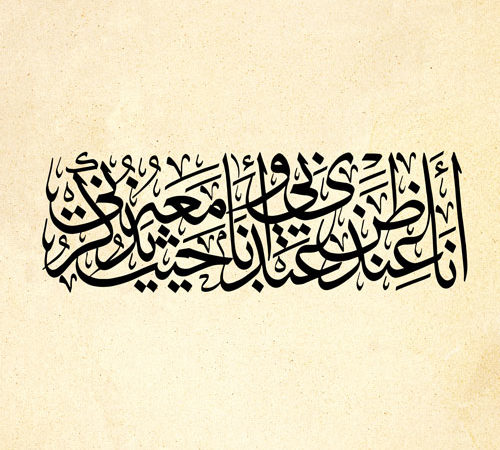 أنا عند ظن عبدي بي وأنا معه حيث يذكرني